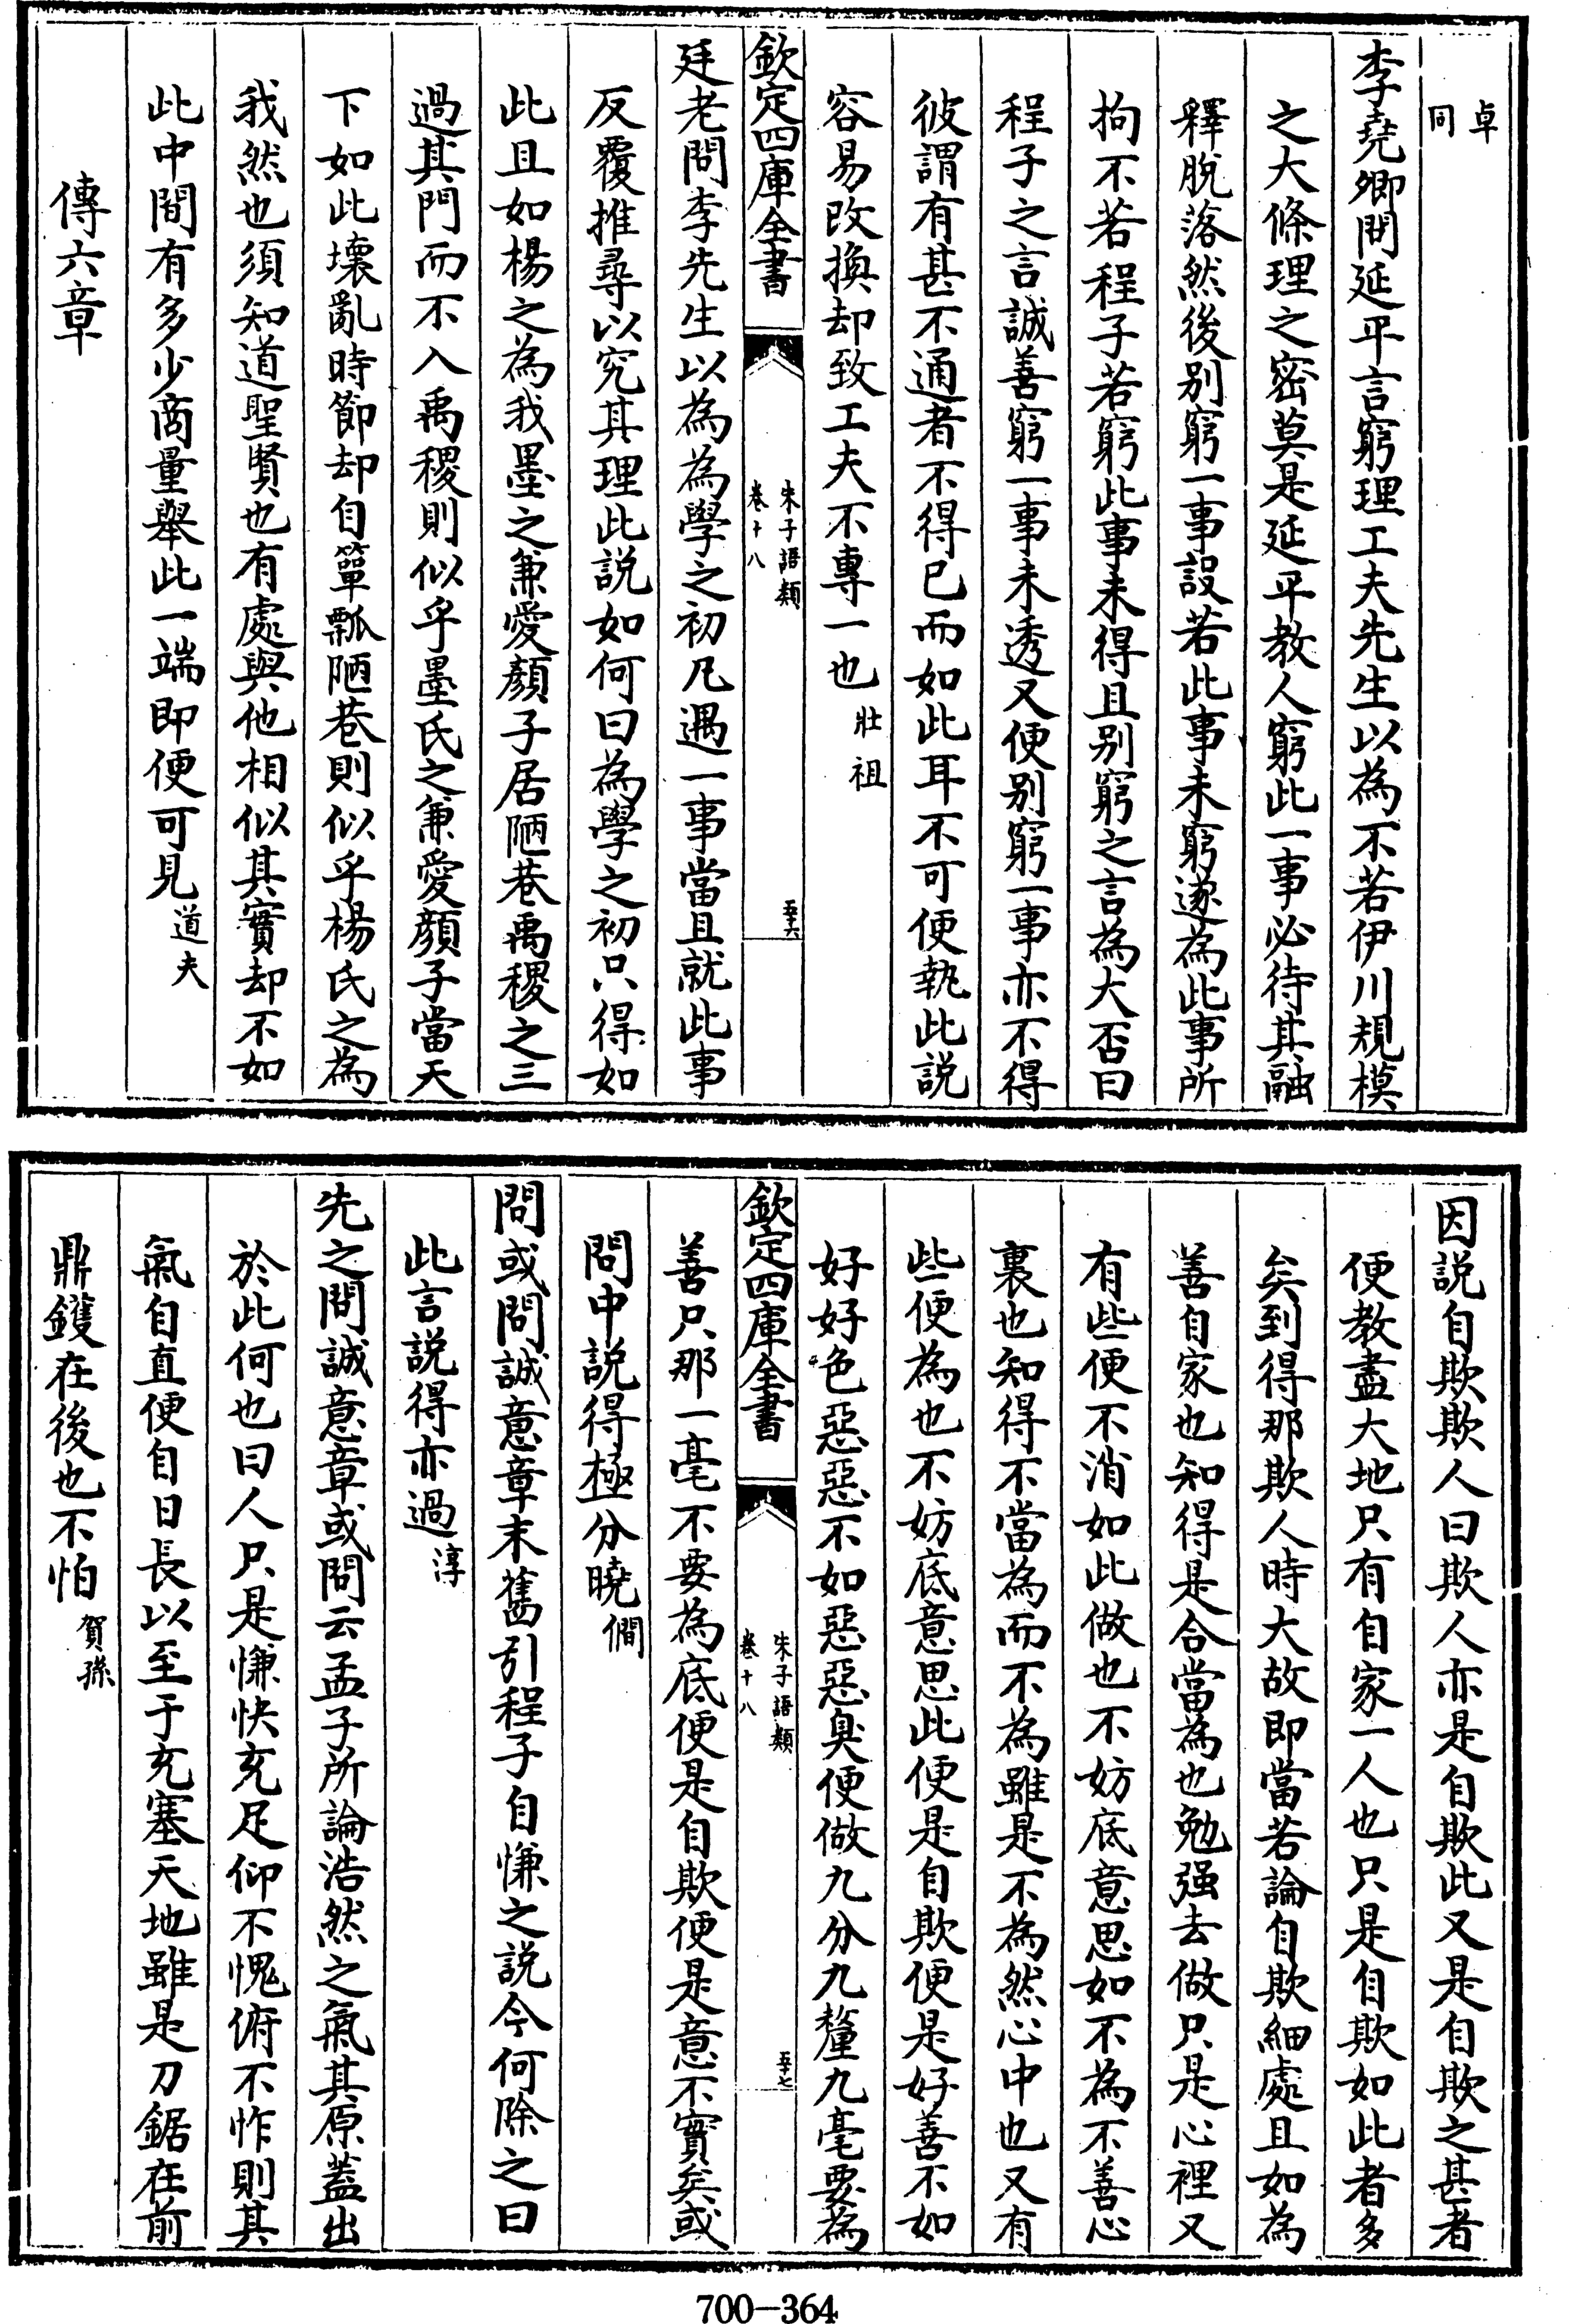 卓
同
李堯卿問延平言窮理工夫先生以為不若伊川規模
之大條理之密莫是延平教人窮此一事必待其融
釋脫落然後别窮一事設若此事未窮遂為此事所
拘不若程子若窮此事未得且别窮之言為大否曰
程子之言誠善窮一事未透又便别窮一事亦不得
彼謂有甚不通者不得已而如此耳不可便執此説
容易改換却致工夫不專一也壯祖
欽定四庫全書
朱子語類
卷十八
五十六
廷老問李先生以為為學之初凡遇一事當且就此事
反覆推尋以究其理此説如何曰為學之初只得如
此且如楊之為我墨之兼愛顏子居陋巷禹稷之三
過其門而不入禹稷則似乎墨氏之兼愛顏子當天
下如此壞亂時節却自簞瓢陋巷則似乎楊氏之為
我然也須知道聖賢也有處與他相似其實却不如
此中間有多少商量舉此一端即便可見道夫
傳六章
因説自欺欺人曰欺人亦是自欺此又是自欺之甚者
便教盡大地只有自家一人也只是自欺如此者多
矣到得那欺人時大故即當若論自欺細處且如為
善自家也知得是合當為也勉强去做只是心裡又
有些便不消如此做也不妨底意思如不為不善心
裏也知得不當為而不為雖是不為然心中也又有
些便為也不妨底意思此便是自欺便是好善不如
好好色惡惡不如惡惡臭便做九分九釐九毫要為
欽定四庫全書
朱子語類
卷十八
五十七
善只那一毫不要為底便是自欺便是意不實矣或
問中説得極分曉僩
問或問誠意章末舊引程子自慊之説今何除之曰
此言説得亦過淳
先之問誠意章或問云孟子所論浩然之氣其原蓋出
於此何也曰人只是慊快充足仰不愧俯不怍則其
氣自直便自日長以至于充塞天地雖是刀鋸在前
鼎鑊在後也不怕賀孫
700-364